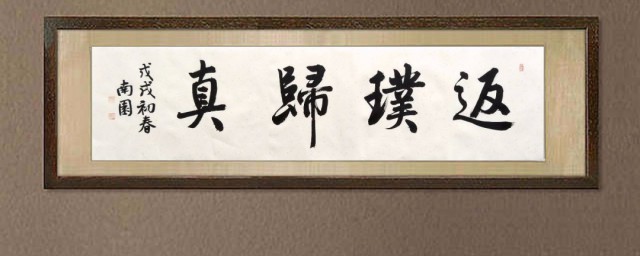 返璞歸真
戊戌初春
南園